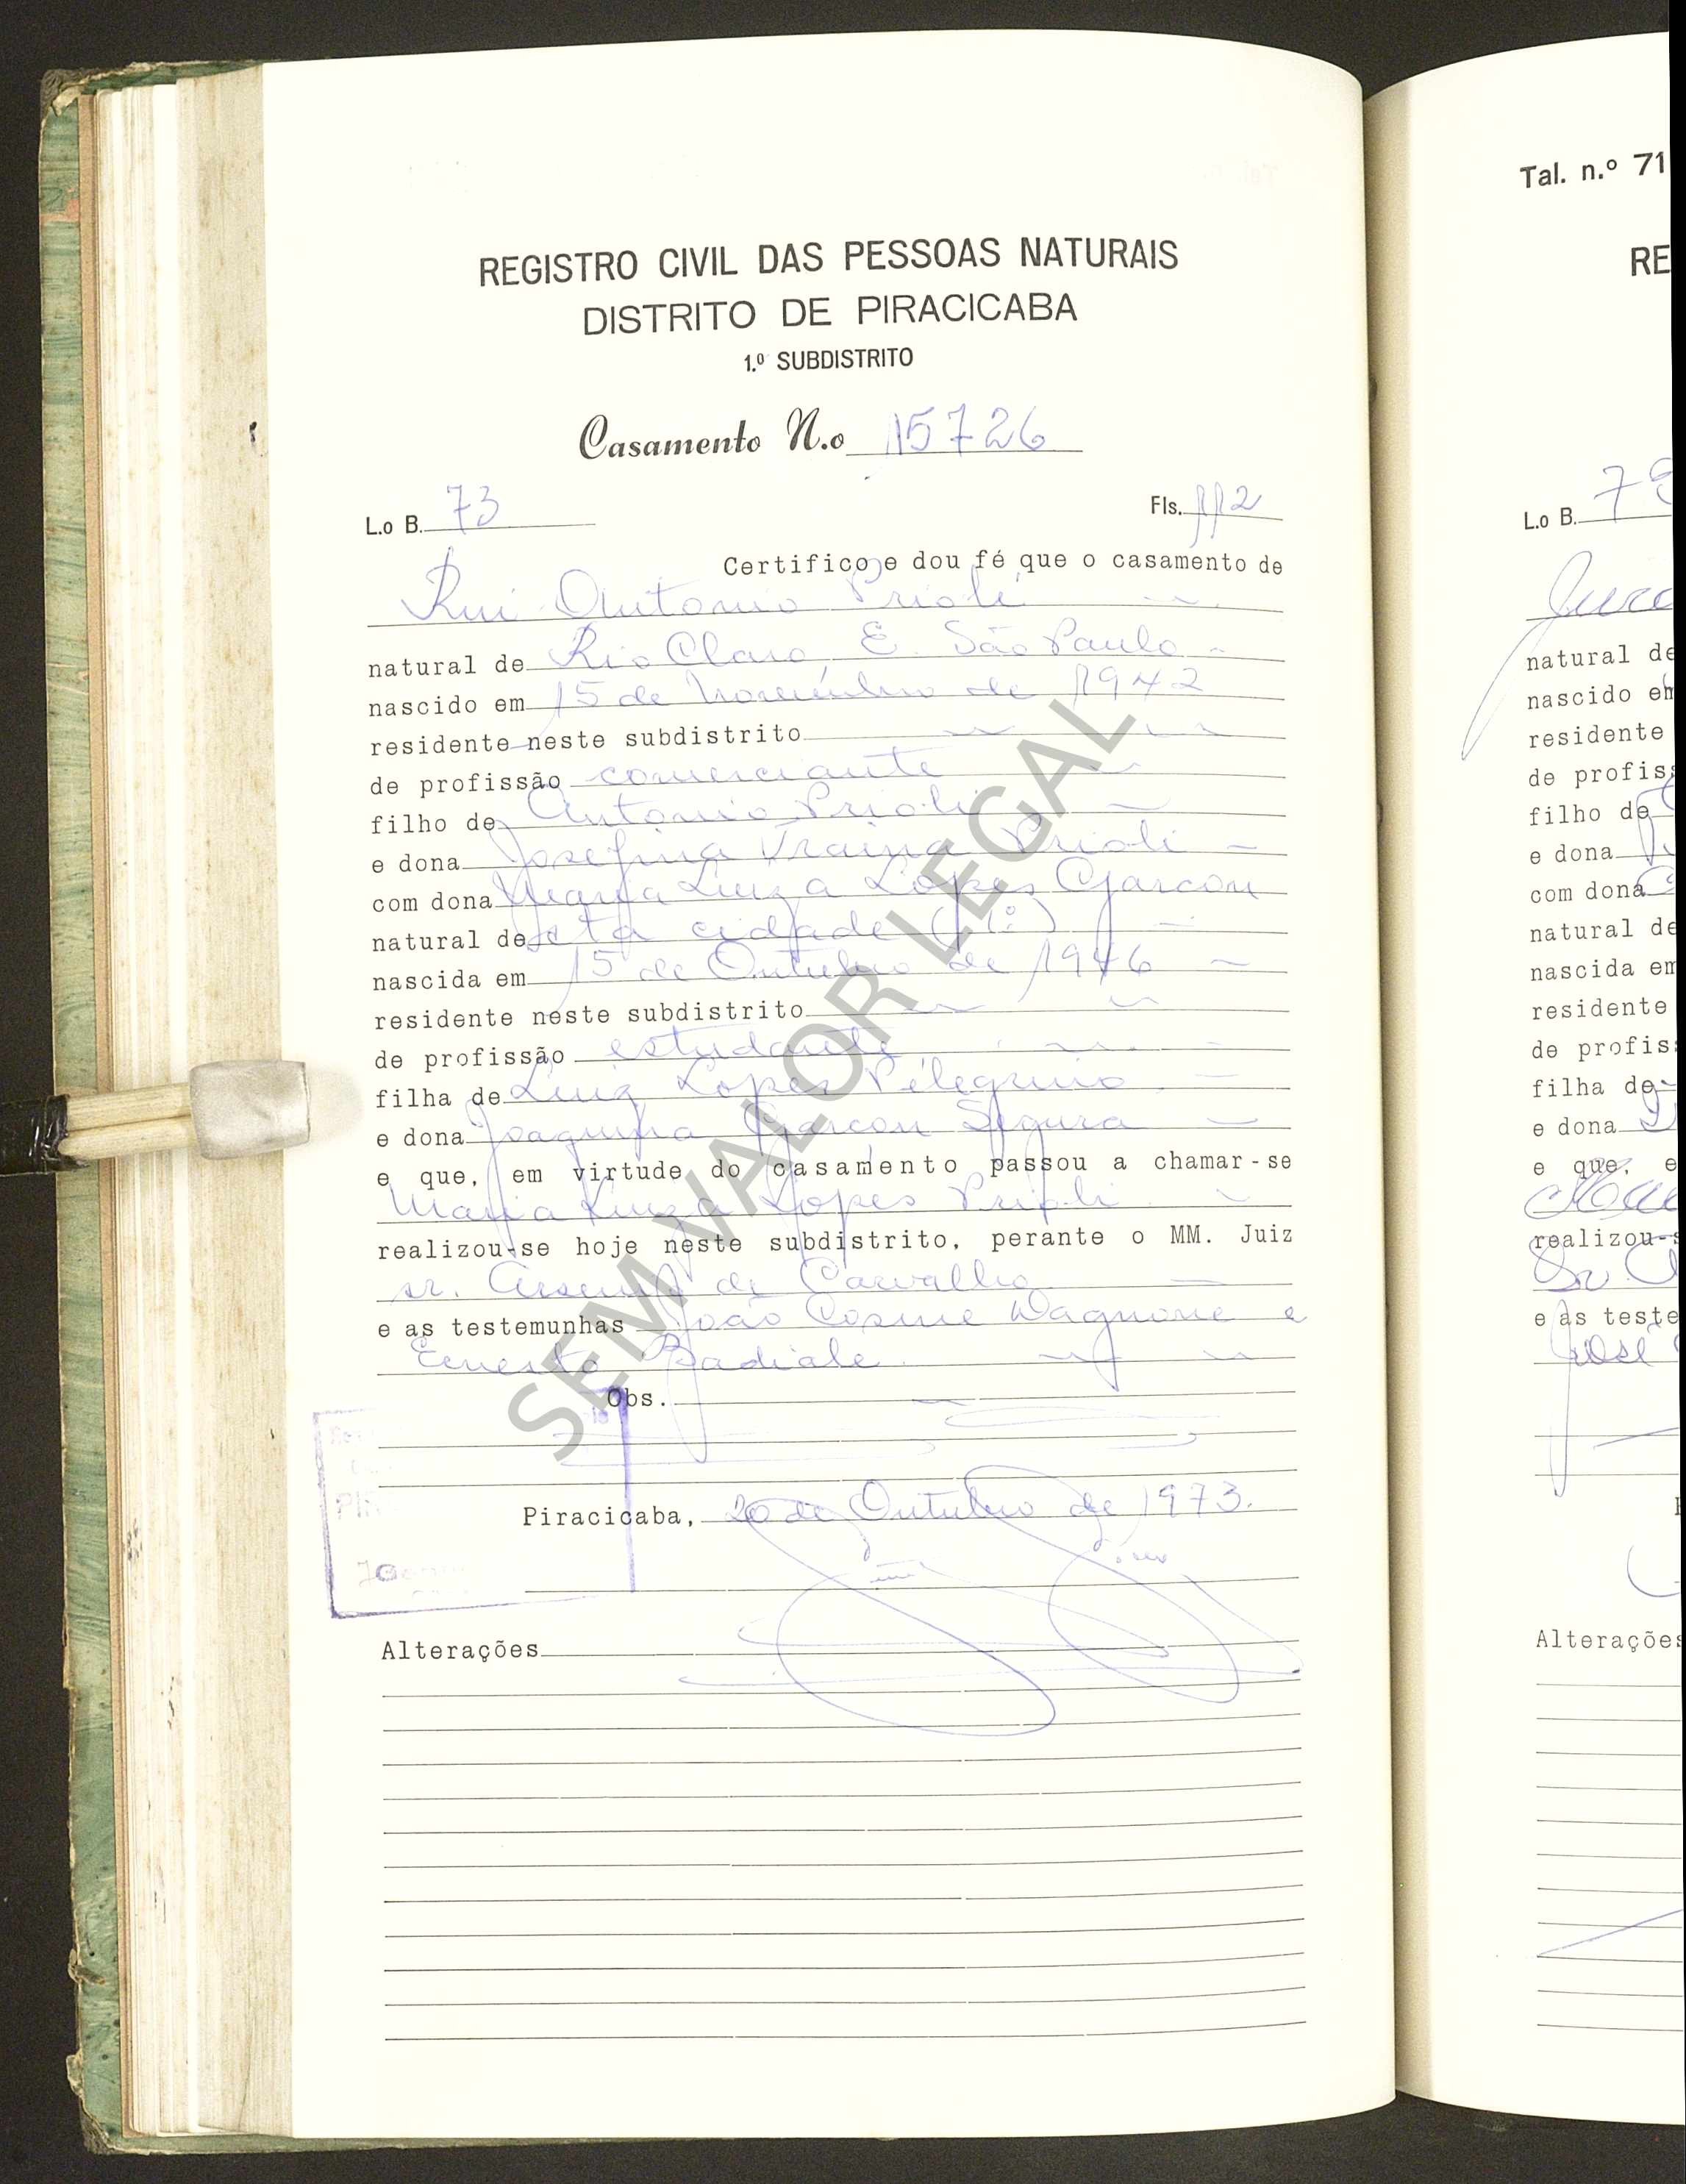 REGISTRO CIVIL DAS PESSOAS NATURAIS
DISTRITO DE PIRACICABA
1.º SUBDISTRITO
Casamento N.o 15726
L.o B. 73 Fls. 112
Certifico e dou fé que o casamento de
Rui Antonio Prioli
natural de Rio Claro, E. São Paulo
nascido em 15 de Novembro de 1942
residente neste subdistrito
de profissão comerciante
filho de Antonio Prioli
e dona Josefina Traina Prioli
com dona Maria Luiza Lopes Garcon
natural desta cidade (1.º)
nascida em 15 de Outubro de 1946
residente neste subdistrito
de profissão estudante
filha de Luiz Lopes Pelegrino
e dona Joaquina Garcon Segura
e que, em virtude do casamento passou a chamar-se
Maria Luiza Lopes Prioli
realizou-se hoje neste subdistrito, perante o MM. Juiz
sr. de Carvalho
e as testemunhas João Cosme Wagnone e
Ernesto Badiale
Obs.
Piracicaba, 20 de Outubro de 1973.
Alterações
SEM VALOR LEGAL
Tal. n.º 71
RE
L.o B. 73
natural de
nascido em
residente
de profis
filho de
e dona
com dona
natural de
nascida em
residente
de profis
filha de
e dona
e que, e
realizou-s
e as teste
José
Alterações